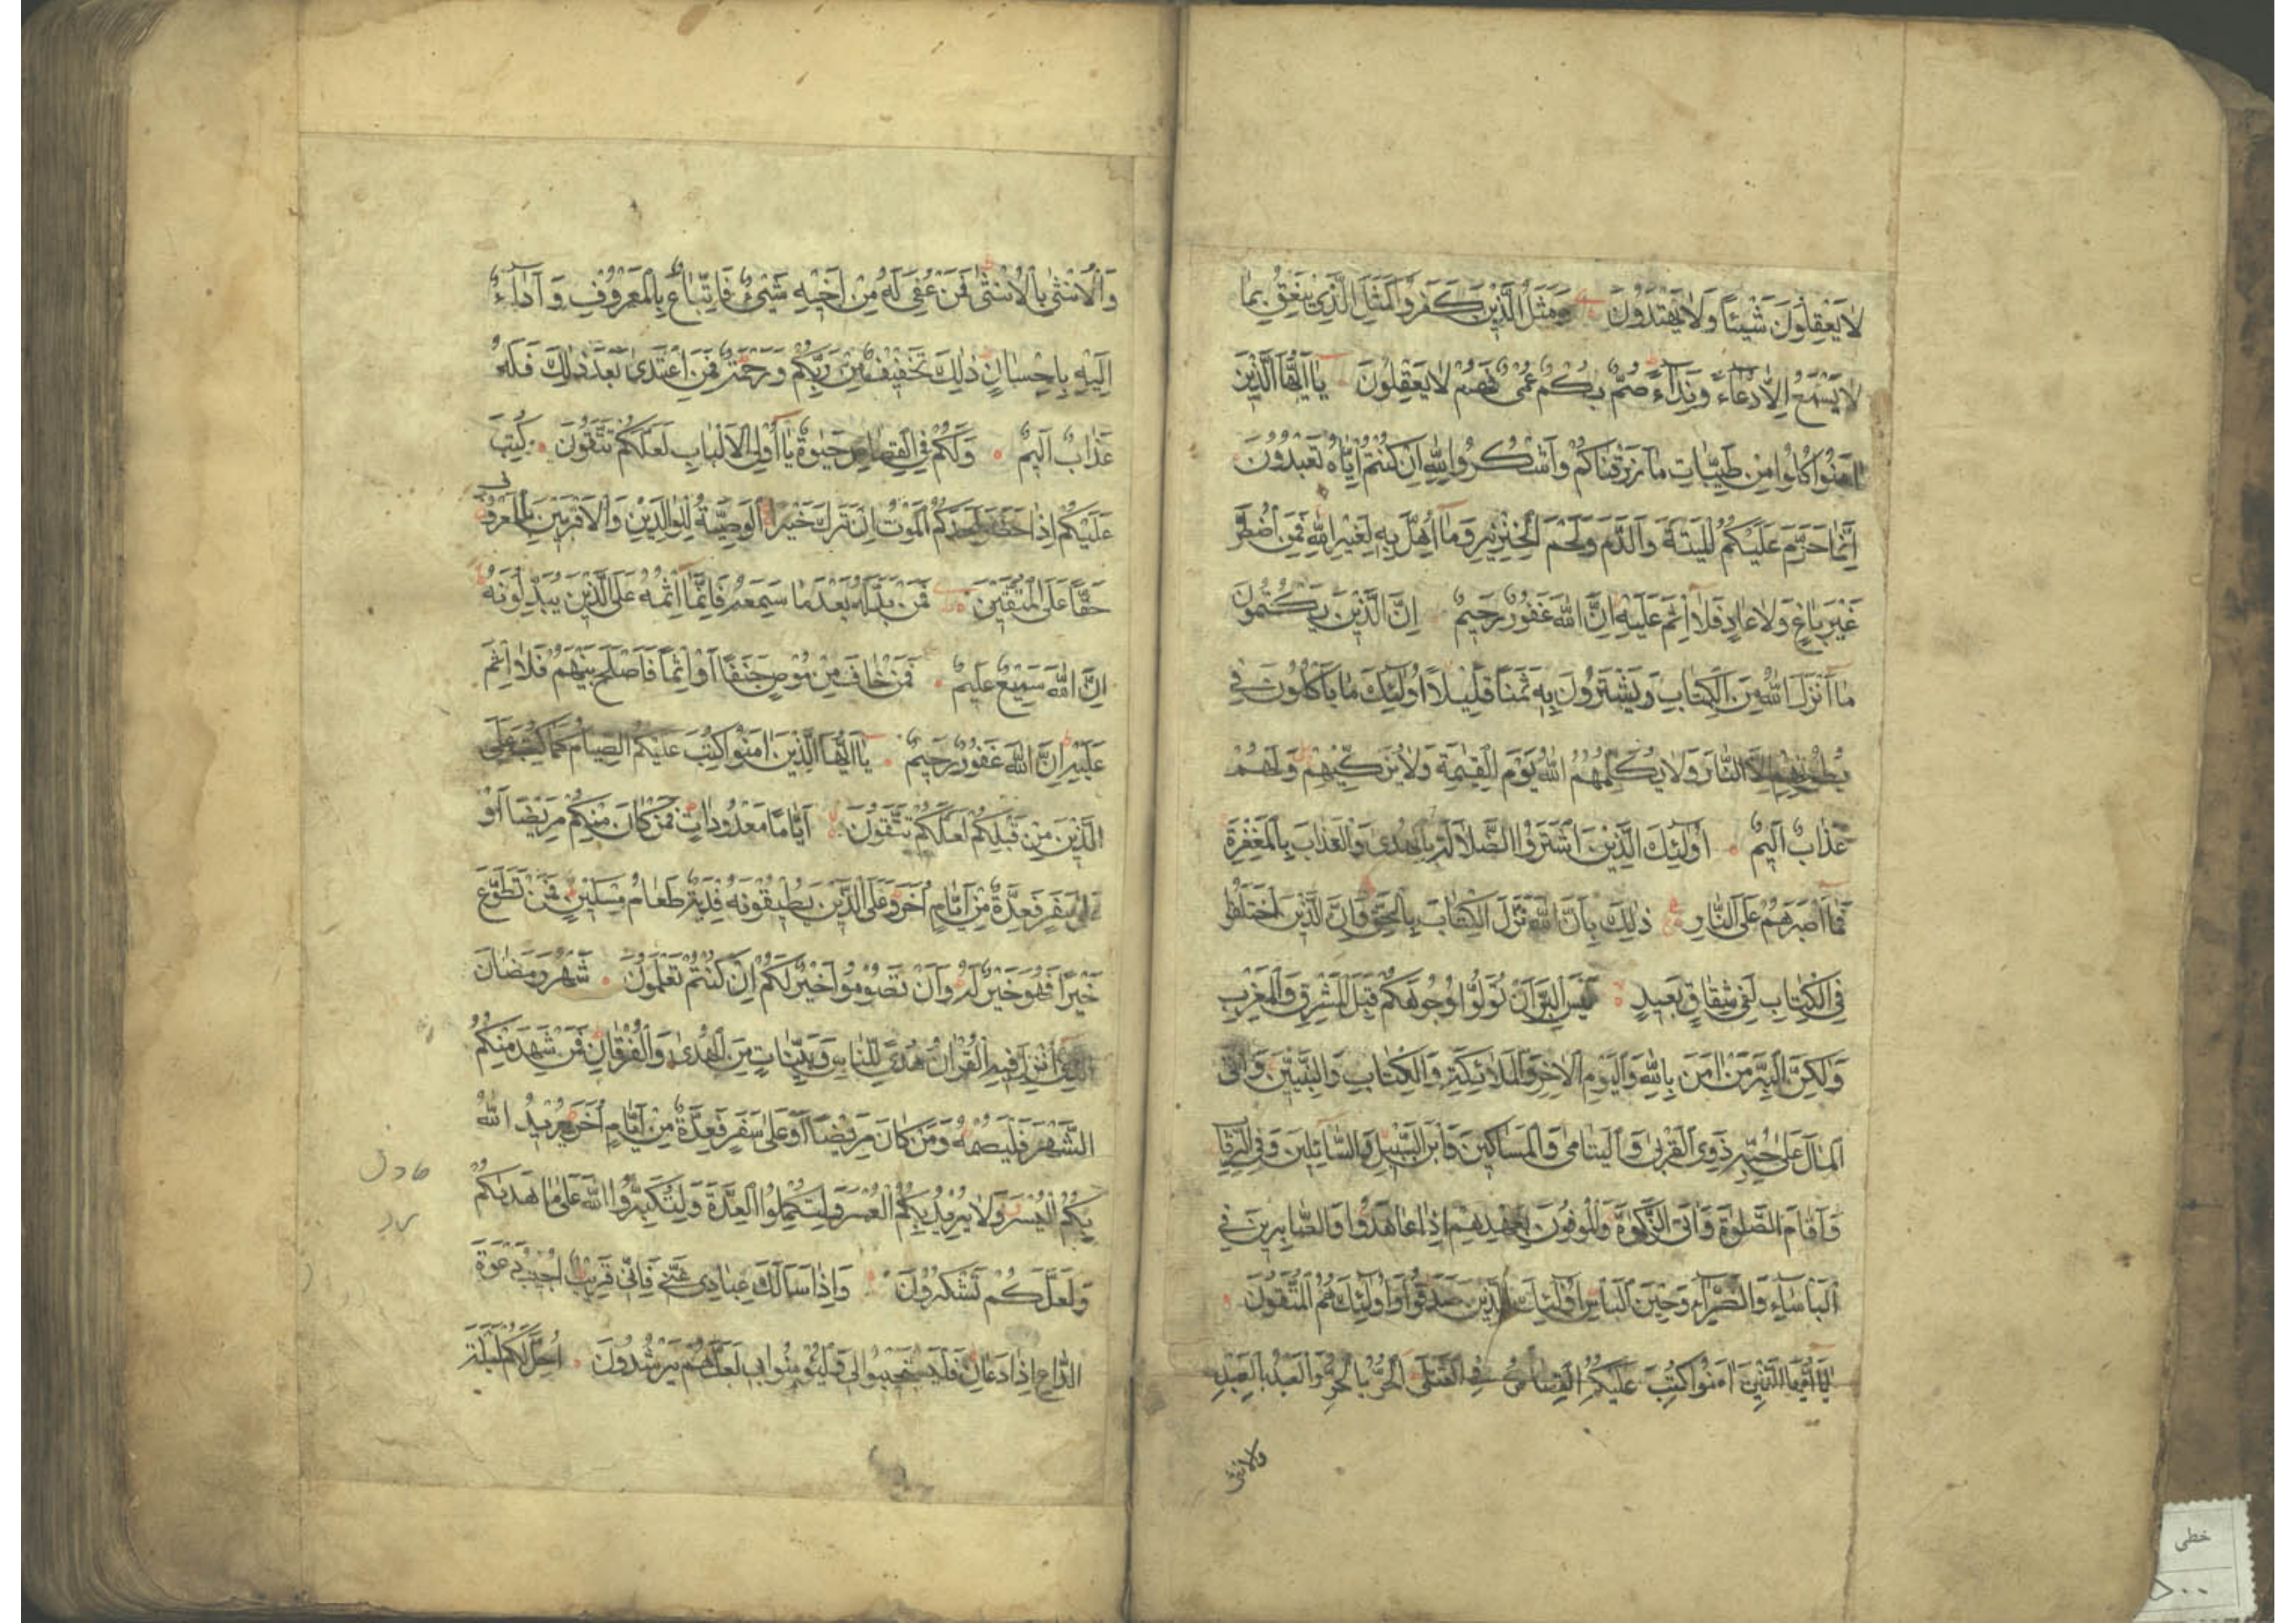 لَا يَعْقِلُونَ شَيْئًا وَلَا يَهْتَدُونَ وَمَثَلُ الَّذِينَ كَفَرُوا كَمَثَلِ الَّذِي يَنْعِقُ بِمَا
لَا يَسْمَعُ اِلَّا دُعَاءً وَنِدَاءً صُمٌّ بُكْمٌ عُمْيٌ فَهُمْ لَا يَعْقِلُونَ يَا اَيُّهَا الَّذِينَ
اٰمَنُوا كُلُوا مِنْ طَيِّبَاتِ مَا رَزَقْنَاكُمْ وَاشْكُرُوا لِلّٰهِ اِنْ كُنْتُمْ اِيَّاهُ تَعْبُدُونَ
اِنَّمَا حَرَّمَ عَلَيْكُمُ الْمَيْتَةَ وَالدَّمَ وَلَحْمَ الْخِنْزِيرِ وَمَا اُهِلَّ بِهِ لِغَيْرِ اللّٰهِ فَمَنِ اضْطُرَّ
غَيْرَ بَاغٍ وَلَا عَادٍ فَلَا اِثْمَ عَلَيْهِ اِنَّ اللّٰهَ غَفُورٌ رَحِيمٌ اِنَّ الَّذِينَ يَكْتُمُونَ
مَا اَنْزَلَ اللّٰهُ مِنَ الْكِتَابِ وَيَشْتَرُونَ بِهِ ثَمَنًا قَلِيلًا اُولٰئِكَ مَا يَأْكُلُونَ فِي
بُطُونِهِمْ اِلَّا النَّارَ وَلَا يُكَلِّمُهُمُ اللّٰهُ يَوْمَ الْقِيٰمَةِ وَلَا يُزَكِّيهِمْ وَلَهُمْ
عَذَابٌ اَلِيمٌ اُولٰئِكَ الَّذِينَ اشْتَرَوُا الضَّلَالَةَ بِالْهُدٰى وَالْعَذَابَ بِالْمَغْفِرَةِ
فَمَا اَصْبَرَهُمْ عَلَى النَّارِ ذٰلِكَ بِاَنَّ اللّٰهَ نَزَّلَ الْكِتَابَ بِالْحَقِّ وَاِنَّ الَّذِينَ اخْتَلَفُوا
فِي الْكِتَابِ لَفِي شِقَاقٍ بَعِيدٍ لَيْسَ الْبِرَّ اَنْ تُوَلُّوا وُجُوهَكُمْ قِبَلَ الْمَشْرِقِ وَالْمَغْرِبِ
وَلٰكِنَّ الْبِرَّ مَنْ اٰمَنَ بِاللّٰهِ وَالْيَوْمِ الْاٰخِرِ وَالْمَلَائِكَةِ وَالْكِتَابِ وَالنَّبِيِّينَ وَاٰتَى
الْمَالَ عَلٰى حُبِّهِ ذَوِي الْقُرْبٰى وَالْيَتَامٰى وَالْمَسَاكِينَ وَابْنَ السَّبِيلِ وَالسَّائِلِينَ وَفِي الرِّقَابِ
وَاَقَامَ الصَّلٰوةَ وَاٰتَى الزَّكٰوةَ وَالْمُوفُونَ بِعَهْدِهِمْ اِذَا عَاهَدُوا وَالصَّابِرِينَ فِي
الْبَأْسَاءِ وَالضَّرَّاءِ وَحِينَ الْبَأْسِ اُولٰئِكَ الَّذِينَ صَدَقُوا وَاُولٰئِكَ هُمُ الْمُتَّقُونَ
يَا اَيُّهَا الَّذِينَ اٰمَنُوا كُتِبَ عَلَيْكُمُ الْقِصَاصُ فِي الْقَتْلٰى اَلْحُرُّ بِالْحُرِّ وَالْعَبْدُ بِالْعَبْدِ
والانثى
وَالْاُنْثٰى بِالْاُنْثٰى فَمَنْ عُفِيَ لَهُ مِنْ اَخِيهِ شَيْءٌ فَاتِّبَاعٌ بِالْمَعْرُوفِ وَاَدَاءٌ
اِلَيْهِ بِاِحْسَانٍ ذٰلِكَ تَخْفِيفٌ مِنْ رَبِّكُمْ وَرَحْمَةٌ فَمَنِ اعْتَدٰى بَعْدَ ذٰلِكَ فَلَهُ
عَذَابٌ اَلِيمٌ وَلَكُمْ فِي الْقِصَاصِ حَيٰوةٌ يَا اُولِي الْاَلْبَابِ لَعَلَّكُمْ تَتَّقُونَ كُتِبَ
عَلَيْكُمْ اِذَا حَضَرَ اَحَدَكُمُ الْمَوْتُ اِنْ تَرَكَ خَيْرًا الْوَصِيَّةُ لِلْوَالِدَيْنِ وَالْاَقْرَبِينَ بِالْمَعْرُوفِ
حَقًّا عَلَى الْمُتَّقِينَ فَمَنْ بَدَّلَهُ بَعْدَ مَا سَمِعَهُ فَاِنَّمَا اِثْمُهُ عَلَى الَّذِينَ يُبَدِّلُونَهُ
اِنَّ اللّٰهَ سَمِيعٌ عَلِيمٌ فَمَنْ خَافَ مِنْ مُوصٍ جَنَفًا اَوْ اِثْمًا فَاَصْلَحَ بَيْنَهُمْ فَلَا اِثْمَ
عَلَيْهِ اِنَّ اللّٰهَ غَفُورٌ رَحِيمٌ يَا اَيُّهَا الَّذِينَ اٰمَنُوا كُتِبَ عَلَيْكُمُ الصِّيَامُ كَمَا كُتِبَ عَلَى
الَّذِينَ مِنْ قَبْلِكُمْ لَعَلَّكُمْ تَتَّقُونَ اَيَّامًا مَعْدُودَاتٍ فَمَنْ كَانَ مِنْكُمْ مَرِيضًا اَوْ
عَلٰى سَفَرٍ فَعِدَّةٌ مِنْ اَيَّامٍ اُخَرَ وَعَلَى الَّذِينَ يُطِيقُونَهُ فِدْيَةٌ طَعَامُ مِسْكِينٍ فَمَنْ تَطَوَّعَ
خَيْرًا فَهُوَ خَيْرٌ لَهُ وَاَنْ تَصُومُوا خَيْرٌ لَكُمْ اِنْ كُنْتُمْ تَعْلَمُونَ شَهْرُ رَمَضَانَ
الَّذِي اُنْزِلَ فِيهِ الْقُرْاٰنُ هُدًى لِلنَّاسِ وَبَيِّنَاتٍ مِنَ الْهُدٰى وَالْفُرْقَانِ فَمَنْ شَهِدَ مِنْكُمُ
الشَّهْرَ فَلْيَصُمْهُ وَمَنْ كَانَ مَرِيضًا اَوْ عَلٰى سَفَرٍ فَعِدَّةٌ مِنْ اَيَّامٍ اُخَرَ يُرِيدُ اللّٰهُ
بِكُمُ الْيُسْرَ وَلَا يُرِيدُ بِكُمُ الْعُسْرَ وَلِتُكْمِلُوا الْعِدَّةَ وَلِتُكَبِّرُوا اللّٰهَ عَلٰى مَا هَدٰيكُمْ
وَلَعَلَّكُمْ تَشْكُرُونَ وَاِذَا سَاَلَكَ عِبَادِي عَنِّي فَاِنِّي قَرِيبٌ اُجِيبُ دَعْوَةَ
الدَّاعِ اِذَا دَعَانِ فَلْيَسْتَجِيبُوا لِي وَلْيُؤْمِنُوا بِي لَعَلَّهُمْ يَرْشُدُونَ اُحِلَّ لَكُمْ لَيْلَةَ
خطی